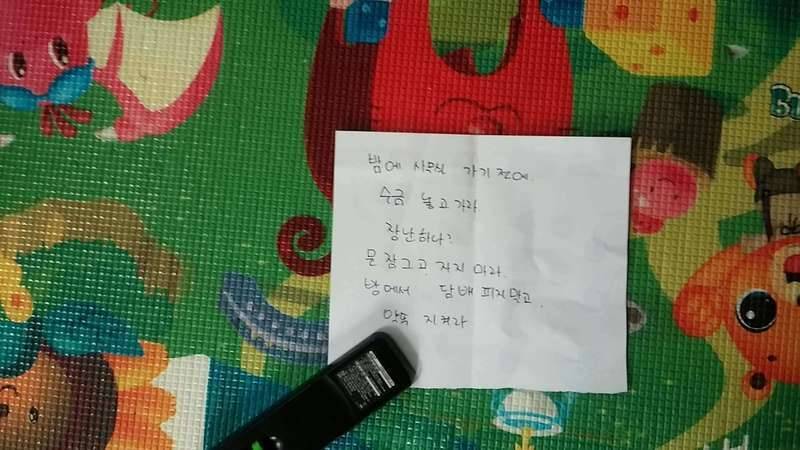 밤에 사무실 가기 전에
수금 놓고 가라
장난하나?
문 잠그고 자지 마라.
방에서 담배 피지말고.
약똑 지켜라